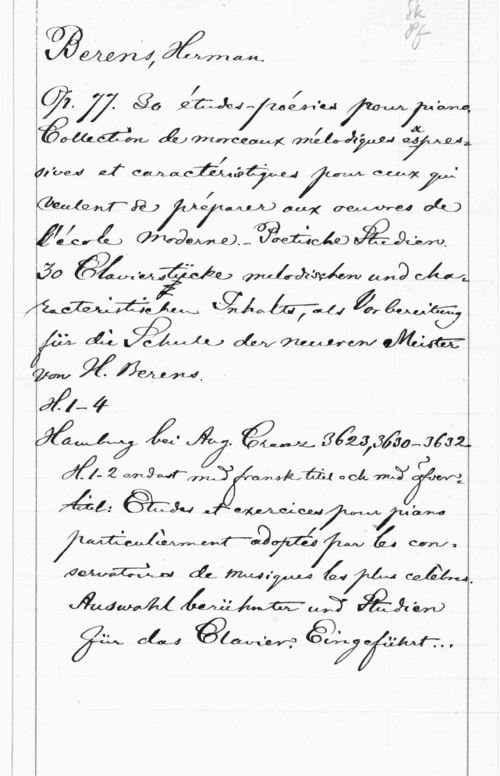 Sk
Pf
Berens, Herman
Op. 77. 30 études-poésies pour piano.
Collection de morceaux mélodiques expres=
sives et caractéristiques pour ceux qui
veulent se préparer aux oeuvres de
l'école moderne. - Poetische Studien.
30 Clavierstücke melodischen und cha=
racteristischen Inhalts, als Vorbereitung
für die Schule der neueren Meister
von H. Berens.
H. 1-4
Hamburg bei Aug. Cranz 3623, 3630-3632
H. 1-2 endast med fransk titel och med öfver=
titel: Etudes et exercices pour piano
particulièrment adoptés par les con=
servatoires de musiques les plus célèbres.
Auswahl berühmter und Studien
für das Clavier. Eingeführt...